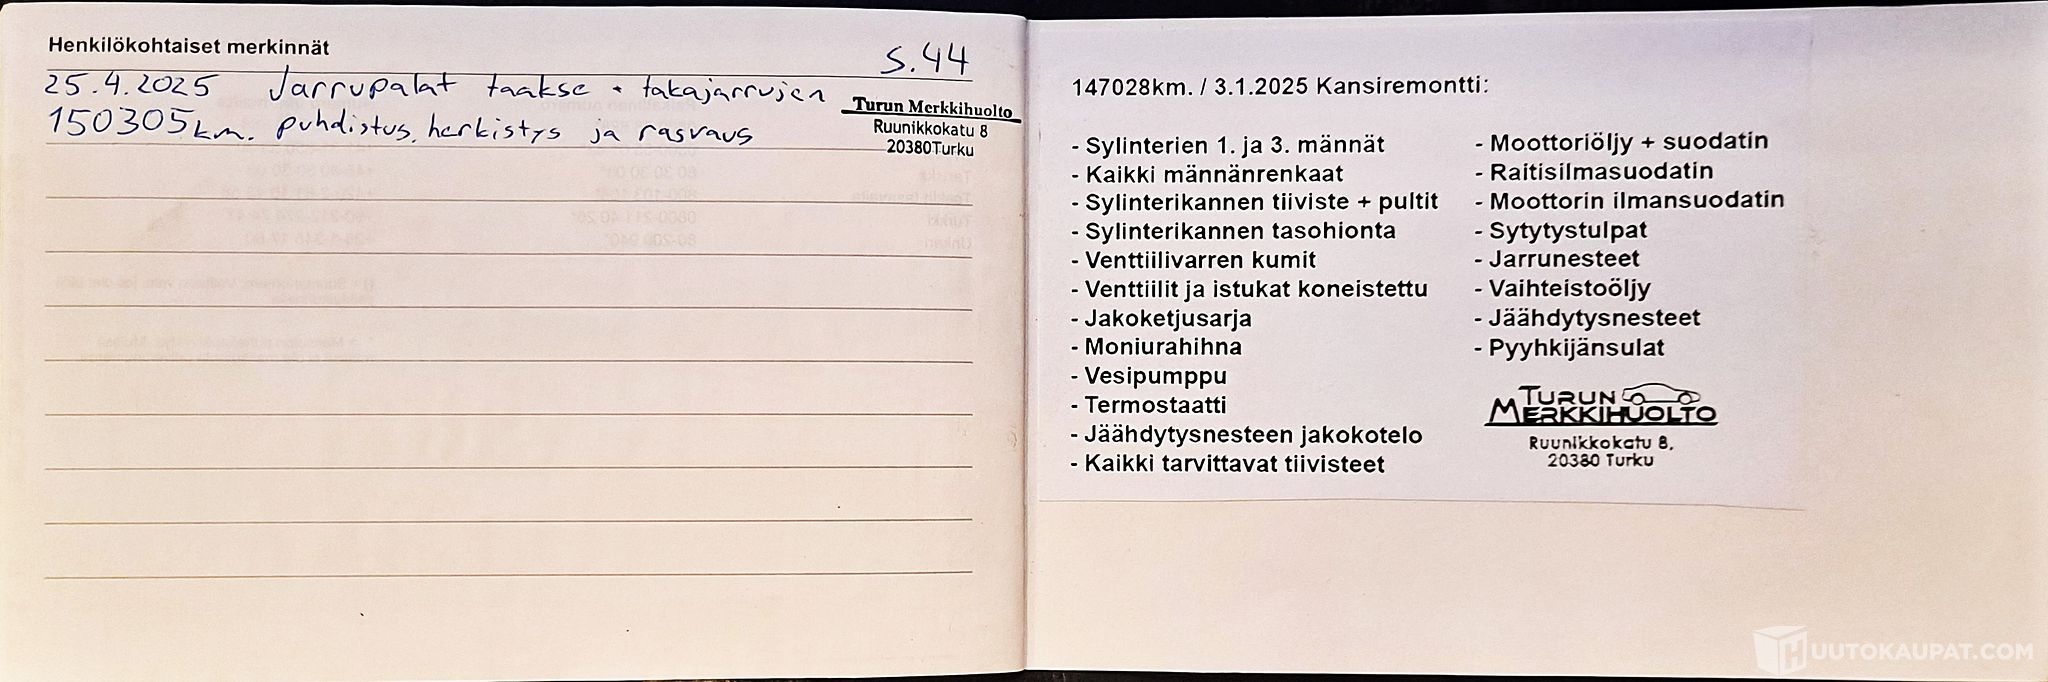 Henkilökohtaiset merkinnät
S.44
25.4.2025 Jarrupalat taakse + takajarrujen
150305km. puhdistus, herkistys ja rasvaus
Turun Merkkihuolto
Ruunikkokatu 8
20380Turku
147028km. / 3.1.2025 Kansiremontti:
- Sylinterien 1. ja 3. männät
- Kaikki männänrenkaat
- Sylinterikannen tiiviste + pultit
- Sylinterikannen tasohionta
- Venttiilivarren kumit
- Venttiilit ja istukat koneistettu
- Jakoketjusarja
- Moniurahihna
- Vesipumppu
- Termostaatti
- Jäähdytysnesteen jakokotelo
- Kaikki tarvittavat tiivisteet
- Moottoriöljy + suodatin
- Raitisilmasuodatin
- Moottorin ilmansuodatin
- Sytytystulpat
- Jarrunesteet
- Vaihteistoöljy
- Jäähdytysnesteet
- Pyyhkijänsulat
TURUN
MERKKIHUOLTO
Ruunikkokatu 8,
20380 Turku
HUUTOKAUPAT.COM